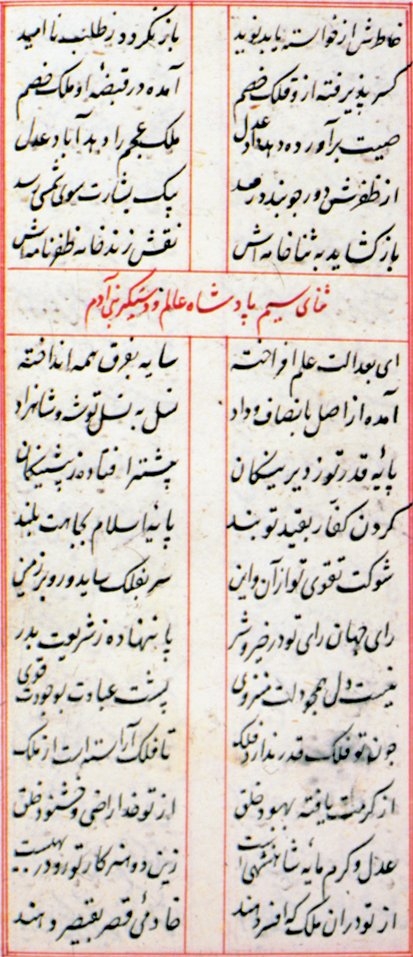 خاطرش از خواسته یابد نوید باز نگردد ز طلب ناامید
کسر پذیرفته ازو فلک خصم آمده در قبضهٔ او ملک خصم
صیت برآورده دهد داد عدل ملک عجم را دهد آباد عدل
از ظفرش دور پیک بشارت سوی رسد
باز کشاید به ثناخانه اش نقش زند خامه ظفرنامه اش
ثنای سیم پادشاه عالم و دستگیر بنی آدم
ای بعدالت علم افراخته سایه بفرق همه انداخته
آمده از اصل بانصاف و داد نسل به نسل تو شه و شاهزاد
پایهٔ قدر تو ز دیرینگان پیشتر افتاده ز پیشینگان
گردن کفار بقید تو بند پایهٔ اسلام بجاهت بلند
شوکت تقوی تو از آن و این سر بفلک ساید و رو بر زمین
رای جهان رای تو در خیر و شر پا ننهاده ز شریعت بدر
نیست دل همچو دلت منزوی پشت عبادت بوجودت قوی
چون تو فلک قدر ندارد فلک تا فلک آراسته است از ملک
از کرمت یافته بهبود خلق از تو خدا راضی و خشنود خلق
عدل و کرم مایه شاهنشهی است زین دو هنر کار تو رو در بهیست
از تو در آن ملک که افسر دهند خادمی قصر بقیصر دهند